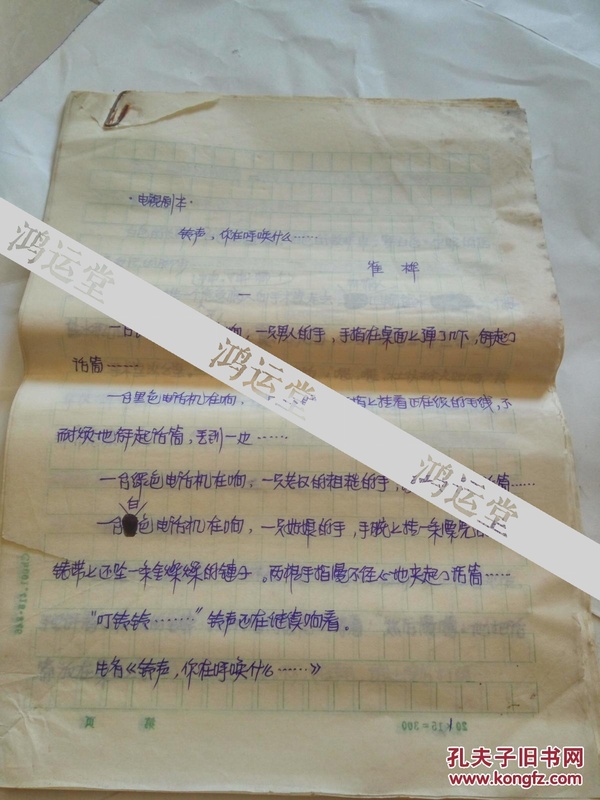 ·电视剧本·
铃声，你在呼唤什么……
崔 桦
一
一只男人的手，手指在桌面上弹了几下，拿起了
话筒……
一台黑色电话机在响，上挂着正在绞的毛线，不
耐烦地拿起话筒，丢到一边……
一台绿色电话机在响，一只老汉的粗糙的手，话筒……
一台白色电话机在响，一只姑娘的手，手腕上挂一条
表带上还坠一条金灿灿的链子。两根手指漫不经心地夹起了话筒……
“叮铃铃……”铃声还在继续响着。
片名《铃声，你在呼唤什么……》
20×15=300
页 第
1
鸿运堂
鸿运堂
鸿运堂
孔夫子旧书网
www.kongfz.com